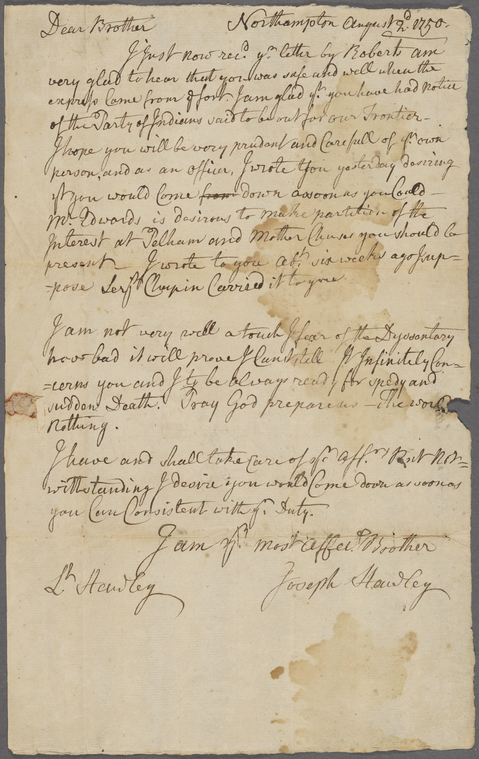 Dear Brother Northampton August 2d. 1750.
I Just now recd. yr. letter by Roberts am
very glad to hear that you was safe and well when the
express Come from ye fort. I am glad yt. you have had Notice
of the Party of Indians said to be out for our Frontier-
I hope you will be very prudent and Carefull of yr. own
person, and as an officer, I wrote to you yesterday desiring
yt. you would Come from down as soon as you Could-
Mr. Edwards is desirous to make partition of the
Interest at Pelham and Mother Chuses you should be
present I wrote to you abt. six weeks ago I sup-
-pose Serjt. Chapin Carried it to you.
I am not very well a touch I fear of the Dyssentary
how bad it will prove I Can't tell. It Infinitely Con-
-cerns you and I to be always ready for spedy and
sudden Death. Pray God prepare us - The world
nothing.
I have and shall take Care of yr. Affrs. But Not=
withstanding I desire you would Come down as soon as
you Can Consistent with yr. Duty.
I am yr. most affect. Brother
Lt. Hawley Joseph Hawley